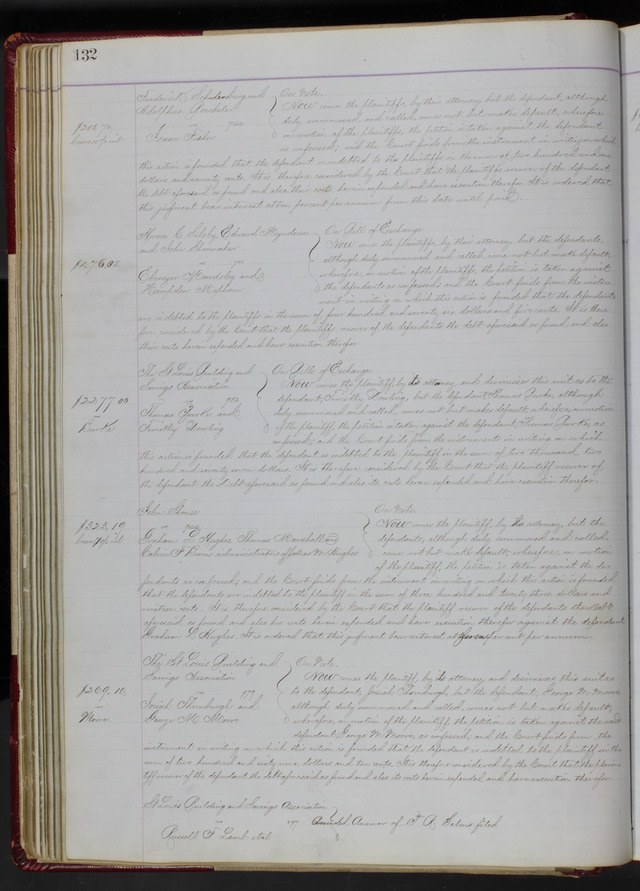 132
Frederick and On Note.
Adolphus
vs 720
Isaac
Now come the plaintiffs, by their attorney, but the defendant, although
duly summoned and called, comes not but makes default; wherefore
on motion of the plaintiffs, the petition is taken against the defendant
as confessed; and the Court finds from the instrument in writing on which
this action is founded, that the defendant is indebted to the plaintiffs in the sum of two hundred and one
dollars and seventy cents. It is therefore considered by the Court that the plaintiffs recover of the defendant
the debt aforesaid so found and also their costs herein expended, and have execution therefor. It is ordered that
this judgment bear interest at ten percent per annum from this date until paid.
Edward and On Bills of Exchange
and John
$476.05
vs
Ebenezer and
Hampden
Now come the plaintiffs, by their attorney, but the defendants,
although duly summoned and called, come not but make default;
wherefore, on motion of the plaintiffs, the petition is taken against
the defendants as confessed; and the Court finds from the instru-
ment in writing on which this action is founded that the defendants
are indebted to the plaintiffs in the sum of four hundred and seventy six dollars and five cents. It is there
fore considered by the Court that the plaintiffs recover of the defendants the debt aforesaid so found, and also
their costs herein expended and have execution therefor.
The St Louis Building and On Bills of Exchange
Savings Association
$2277.00
vs
Thomas and
Timothy Dowling
Now comes the plaintiff, by its attorney, and dismisses this suit as to the
defendant, Timothy Dowling, but the defendant Thomas although
duly summoned and called, comes not but makes default; wherefore, on motion
of the plaintiff, the petition is taken against the defendant, Thomas as
confessed; and the Court finds from the instruments in writing on which
this action is founded, that the defendant is indebted to the plaintiff in the sum of two thousand two
hundred and seventy seven dollars. It is therefore considered by the Court that the plaintiff recover of
the defendant the debt aforesaid so found and also its costs herein expended and have execution therefor.
John On Note
$323.19
vs
Graham L Hughes, Thomas Marshall and
Calvin F Burnes administrator of W Hughes
Now comes the plaintiff, by his attorney, but the
defendants, although duly summoned and called,
come not but make default; wherefore, on motion
of the plaintiff, the petition is taken against the de-
fendants as confessed; and the Court finds from the instrument in writing on which this action is founded
that the defendants are indebted to the plaintiff in the sum of three hundred and twenty three dollars and
nineteen cents. It is therefore considered by the Court that the plaintiff recover of the defendants the debt
aforesaid so found and also his costs herein expended and have execution therefor against the defendant
Graham L Hughes. It is ordered that this judgment bear interest at per cent per annum.
The St Louis Building and On Note
Savings Association
$269.10
Moore
vs
Josiah Thornburgh and
George W Moore
Now comes the plaintiff, by its attorney, and dismisses this suit as
to the defendant, Josiah Thornburgh, but the defendant, George W Moore,
although duly summoned and called, comes not but makes default;
wherefore, on motion of the plaintiff, the petition is taken against the said
defendant George W. Moore, as confessed; and the Court finds from the
instrument in writing on which this action is founded that the defendant is indebted to the plaintiff in the
sum of two hundred and sixty nine dollars and ten cents. It is therefore considered by the Court that the plain-
tiff recover of the defendant the debt aforesaid so found and also its costs herein expended and have execution therefor.
St Louis Building and Savings Association
vs Amended Answer of filed
Russell F. Lamb et al